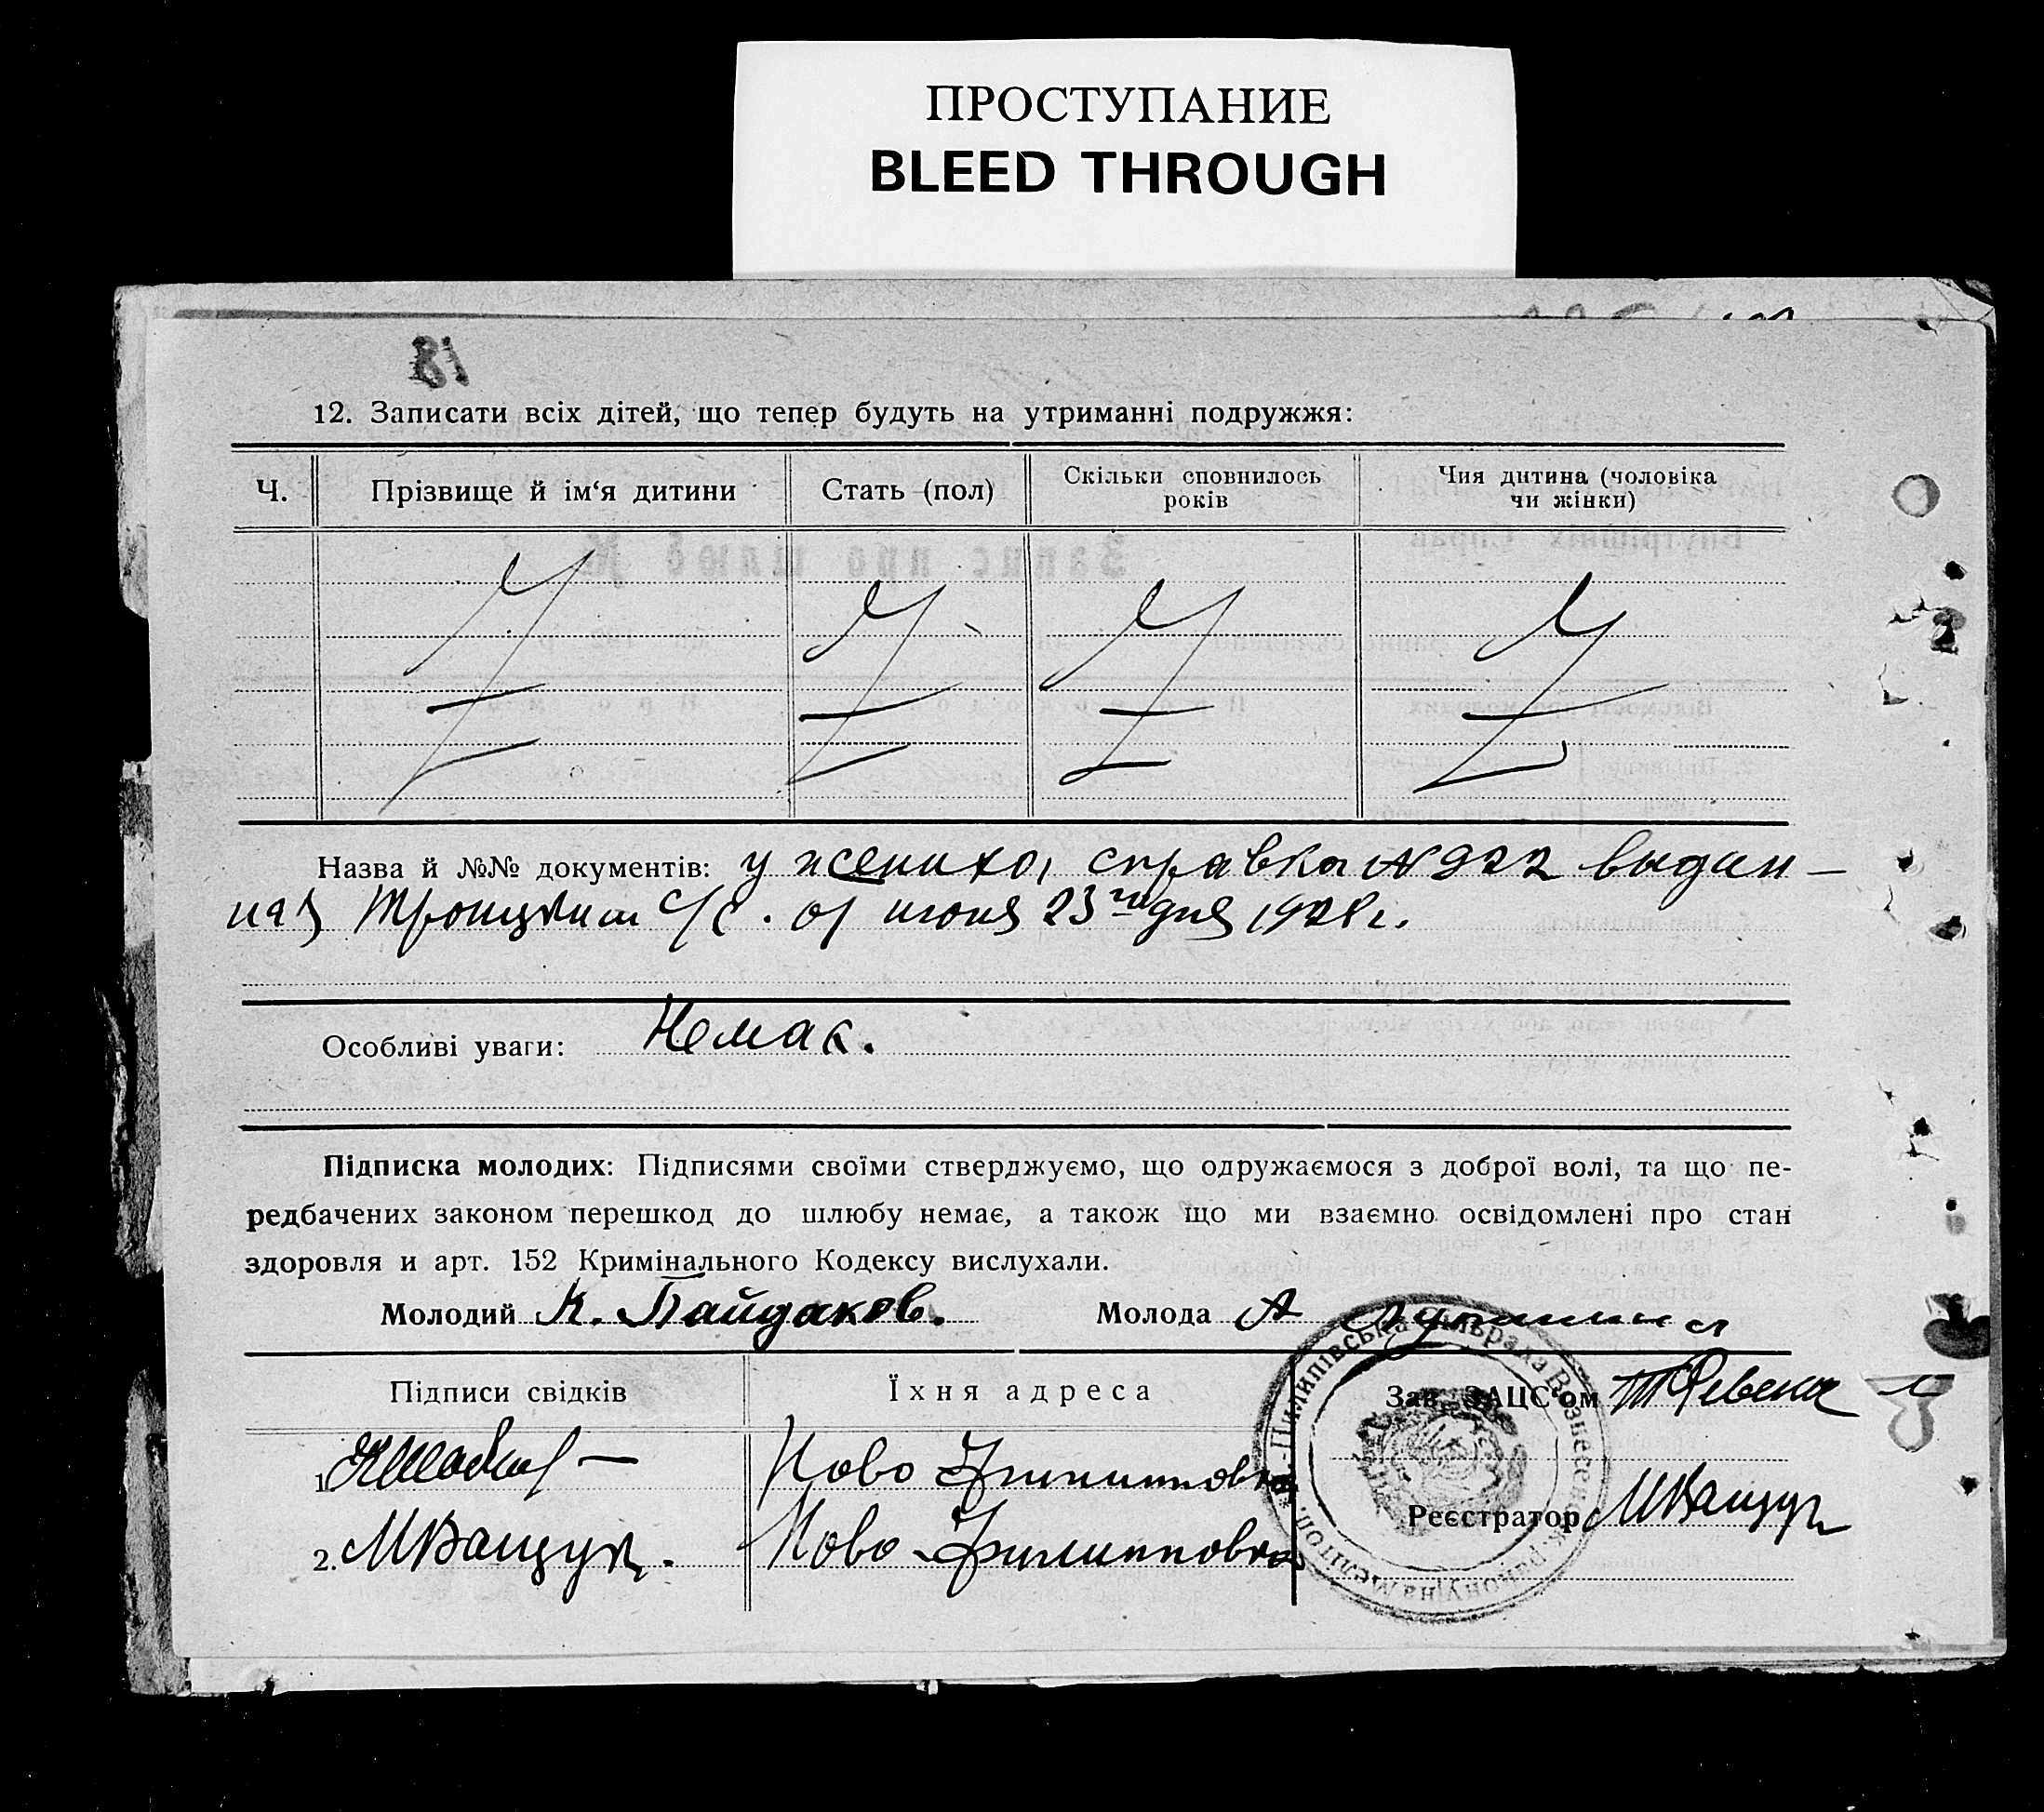 ПРОСТУПАНИЕ
BLEED THROUGH
81
12. Записати всіх дітей, що тепер будуть на утриманні подружжя:
Ч. Прізвище й ім‘я дитини Стать (пол) Скільки сповнилось років Чия дитина (чоловіка чи жінки)
Назва й №№ документів: у жениха, справка № 922 выдан-
ная Троицким с/с. от июня 23го дня 1928 г.
Особливі уваги: Немає.
Підписка молодих: Підписями своїми стверджуємо, що одружаємося з доброї волі, та що пе-
редбачених законом перешкод до шлюбу немає, а також що ми взаємно освідомлені про стан
здоровля и арт. 152 Кримінального Кодексу вислухали.
Молодий К. Пайдаков. Молода А
Підписи свідків Їхня адреса Зав. ЗАЦС‘ом
1. Ново Филипповка
2. МВащук. Ново-Филипповка Реєстратор МВащук